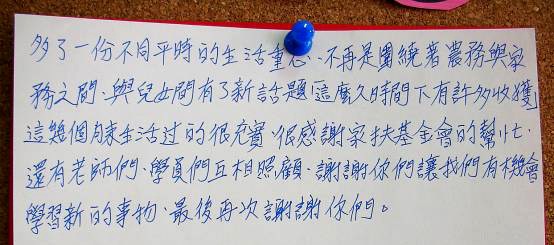 多了一份不同平時的生活重心、不再是圍繞著農務與家
務之間、與兒女間有了新話題這麼久時間下有許多收獲
這幾個月來生活过的很充實、很感謝家扶基金會的幫忙、
還有老師們、學員們互相照顧、謝謝你們讓我們有機會
學習新的事物、最後再次謝謝你們。